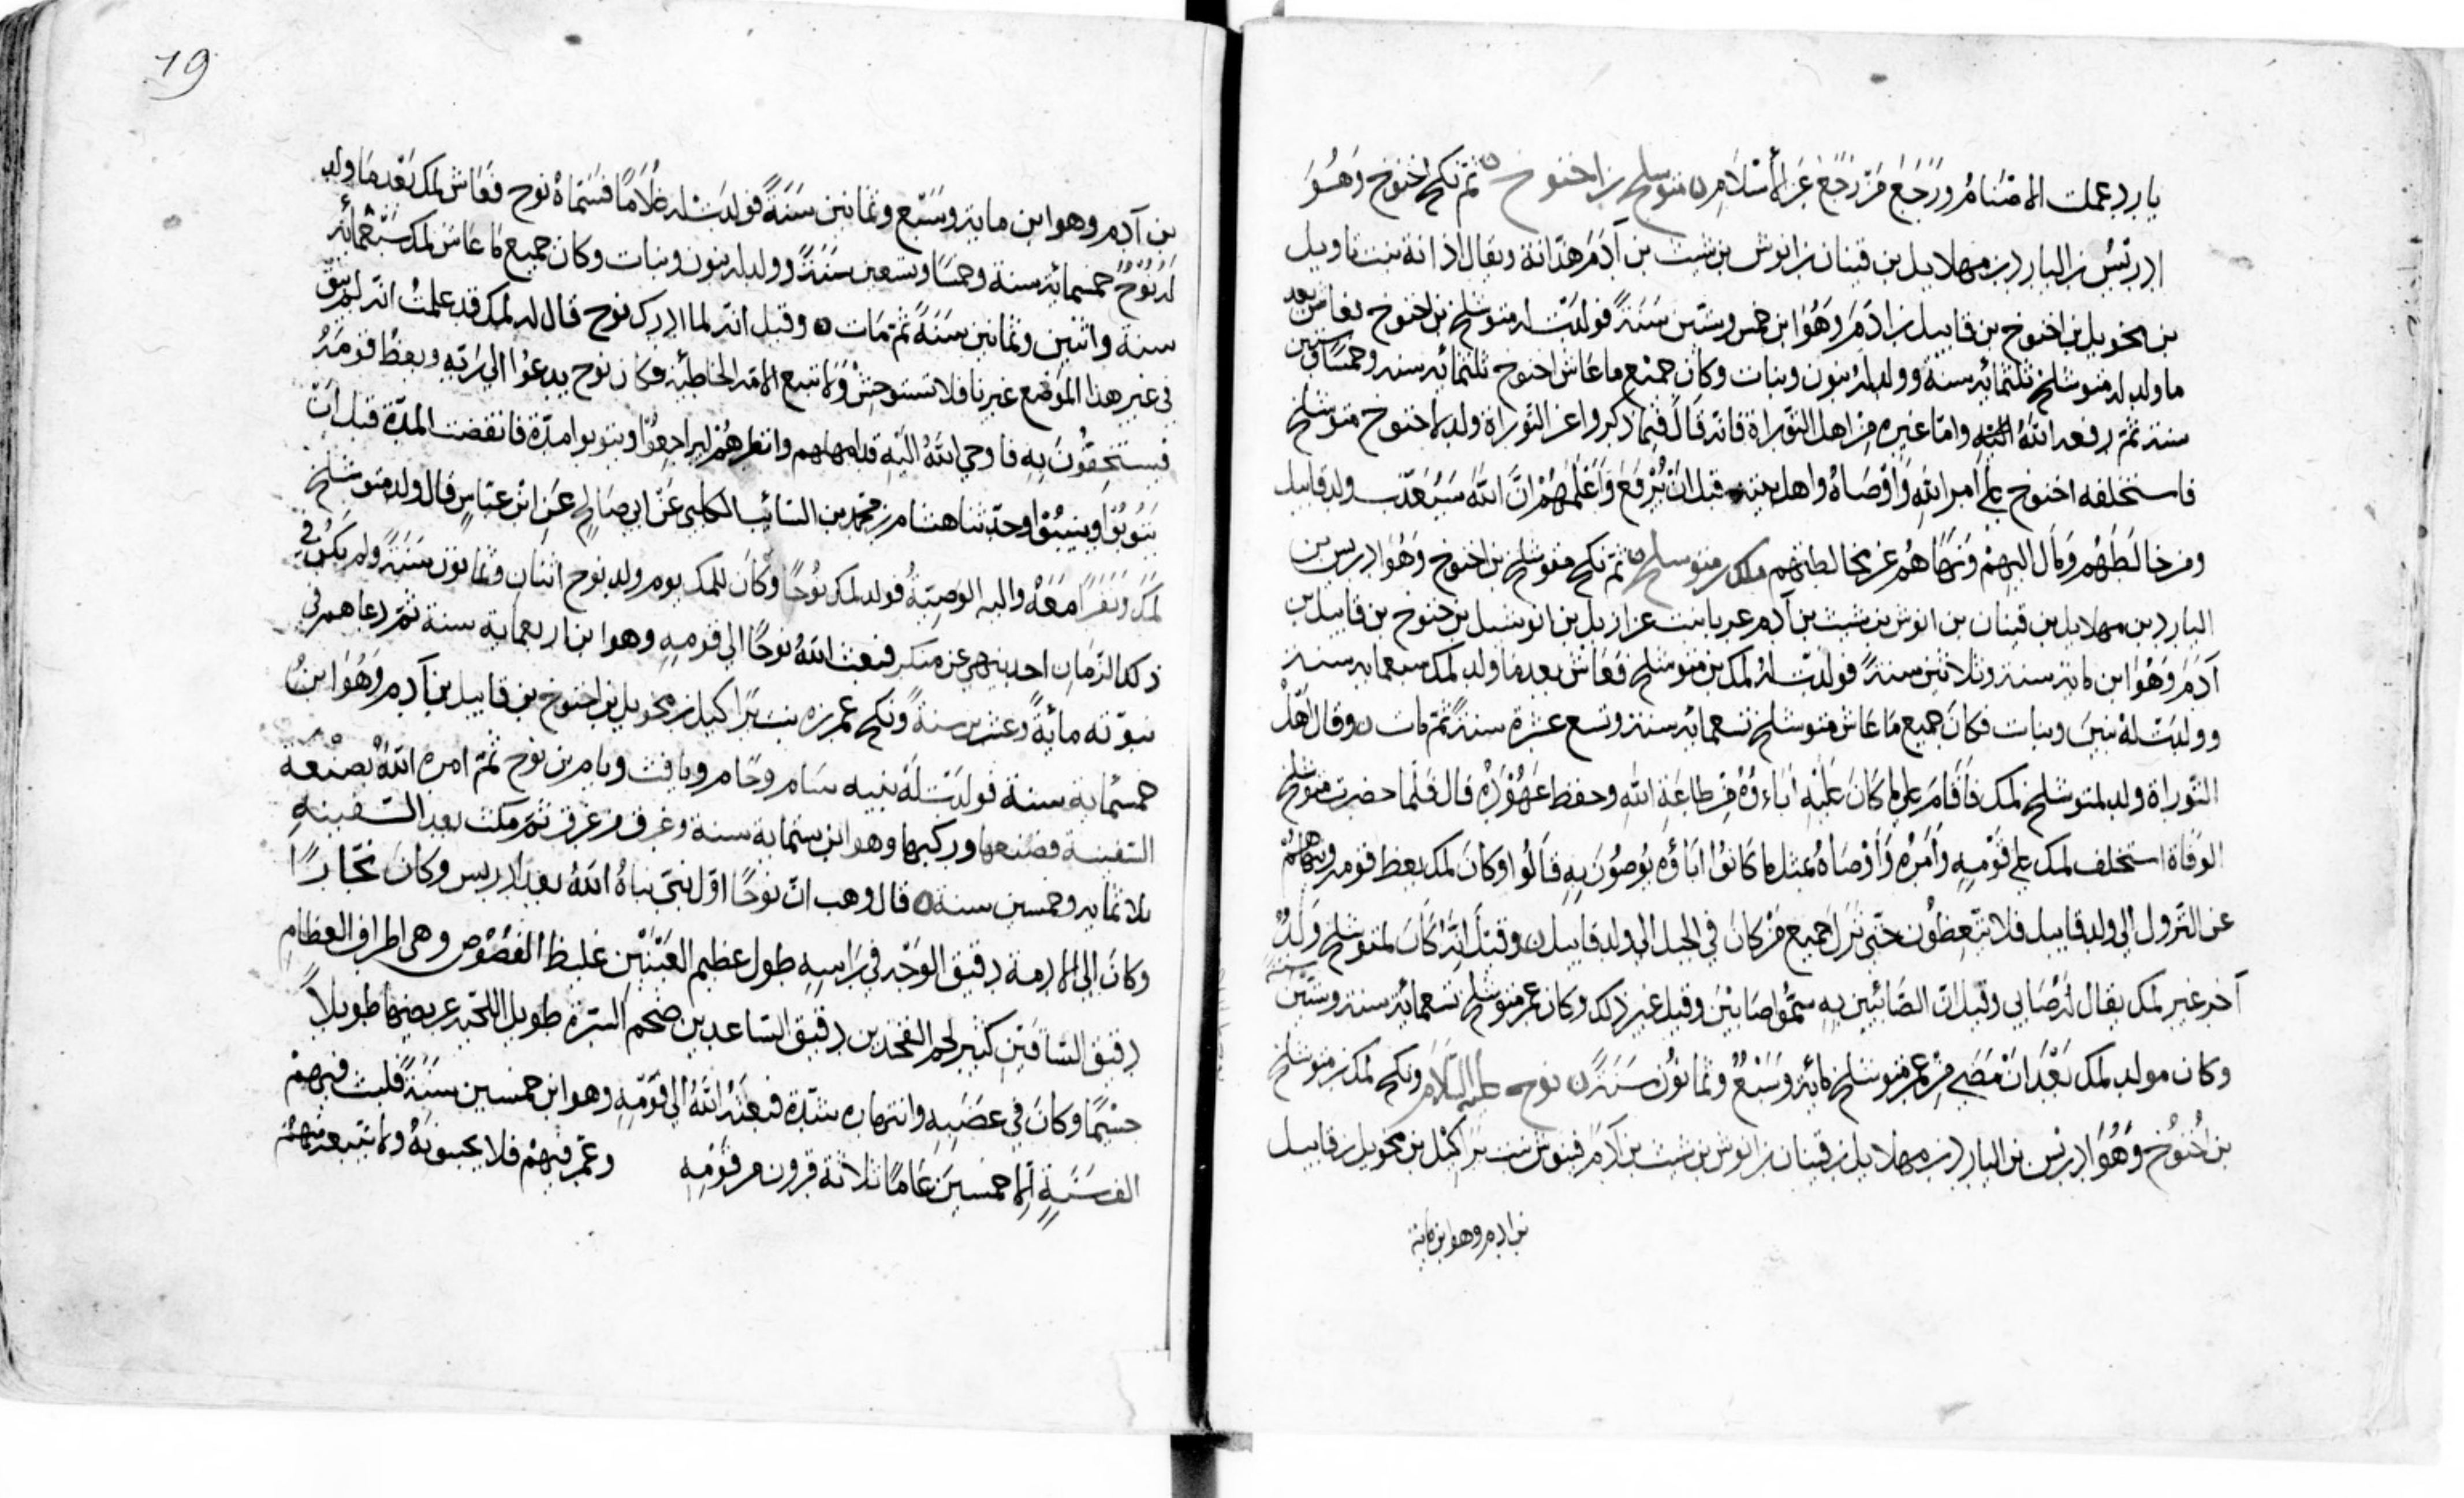 يارد عملت الاصنام ورجع من رجع عن الاسلام ن متوشلح بن اخنوخ ن ثم نكح اخنوخ وهو
ادريس بن اليارد بن مهلايل بن قينان بن انوش بن شيث بن آدم هدانة ويقال اذانة بنت باويل
بن محويل بن اخنوخ بن قابيل بن ادم وهو ابن خمس وستين سنة فولدت له متوشلخ بن اخنوخ فعاش بعد
ما ولد له متوشلخ ثلثمائة سنة وولد له بنون وبنات وكان جميع ما عاش اخنوخ ثلثمائة سنه وخمسا وستين
سنة ثم رفعه الله اليه واما غيره من اهل التوراة فانه قال فيما ذكروا عن التوراة ولد لاخنوخ متوشلخ
فاستخلفه اخنوخ على امر الله واوصاه واهل بيته قبل ان يرفع واعلمهم ان الله سيعذب ولد قابيل
ومن خالطهم ومال اليهم ونهاهم عن مخالطتهم ملك بن متوسلح ن ثم نكح متوشلخ بن اخنوخ وهو ادريس بن
اليارد بن مهلايل بن قينان بن انوش بن شيث بن آدم عربا بنت عزازيل بن انوشيل بن خنوخ بن قابيل بن
آدم وهو ابن مايه سنة وثلاثين سنة فولدت له لمك بن متوشلخ فعاش بعد ما ولد لمك سبعمايه سنة
وولدت له بنين وبنات فكان جميع ما عاش متوشلخ تسعمائه سنة وتسع عشرة سنة ثم مات ن وقال اهل
التوراة ولد لمتوشلخ لمك فاقام على ما كان عليه اباءوه من طاعة الله وحفظ عهوده قال فلما حضرت متوشلخ
الوفاة استخلف لمك على قومه وامره واوصاه بمثل ما كانوا اباؤه يوصون به قالوا وكان لمك يعظ قومه وينهاهم
عن النزول الى ولد قابيل فلا يتعظون حتى نزل جميع من كان في الجبل الى ولد قابيل ن وقيل انه كان لمتوشلخ ولد
آخر غير لمك يقال له صابي وقيل ان الصائبين به سموا صابئين وقيل غير ذلك وكان عمر متوشلخ تسعمائه سنة وستين سنة
وكان مولد لمك بعد ان مضى من عمر متوشلخ مائه وسبع وثمانون سنة ن نوح عليه السلام ونكح لمك بن متوشلخ
بن اخنوخ وهو ادريس بن اليارد بن مهلايل بن قينان بن انوش بن شيث بن آدم قينوش بنت براكيل بن محويل بن قابيل
بن ادم وهو ابن ماية
19
بن آدم وهو ابن مايه وسبع وثمانين سنة فولدت له غلاما فسماه نوح فعاش لمك بعد ما ولد
له نوح خمسمائة سنة وخمسا وتسعين سنة وولد له بنون وبنات وكان جميع ما عاش لمك سبعمائة
سنة واثنين وثمانين سنة ثم مات ن وقيل انه لما ادرك نوح قال له لمك قد علمت انه لم يبق
في غير هذا الموضع غيرنا فلا تستوحش ولا تتبع الامة الخاطئة فكان نوح يدعوا الى ربه ويعظ قومه
فيستخفون به فاوحى الله اليه قد امهلهم وانظرهم ليراجعوا ويتوبوا مدة فانقضت المدة قبل ان
يتوبوا وينيبوا وحدثنا هشام بن محمد بن السائب الكلبي عن ابي صالح عن ابن عباس قال ولد متوشلخ
لمك ونفرا معه واليه الوصية فولد لمك نوحا وكان للمك يوم ولد نوح اثنان وثمانون سنة ولم يكن في
ذلك الزمان احد ينهي عن منكر فبعث الله نوحا الى قومه وهو ابن اربعماية سنة ثم دعاهم في
نبوته مائة وعشرين سنة ونكح عمرزه بنت براكيل بن محويل بن اخنوخ بن قابيل بن آدم وهو ابن
خمسماية سنة فولدت له بنيه سام وحام ويافث ويام بن نوح ثم امره الله بصنعة
السفينة فصنعها وركبها وهو ابن ستماية سنة وغرق من غرق ثم مكث بعد السفينه
ثلاثمايه وخمسين سنة ن قال وهب ان نوحا اول نبي نباه الله بعد ادريس وكان نجارا
وكان الى الادمة دقيق الوجه في راسه طول عظيم العينين غليظ الفصوص وهي اطراف العظام
دقيق الساقين كثير لحم الفخذين دقيق الساعدين ضخم السرة طويل اللحية عريضها طويلا
جسيما وكان في عضبه وانتهاره شدة فبعثه الله الى قومه وهو ابن خمسين سنة فلبث فيهم
الف سنة الا خمسين عاما ثلاثة قرون من قومه وعمر فيهم فلا يجيبونه ولا يتبعه منهم